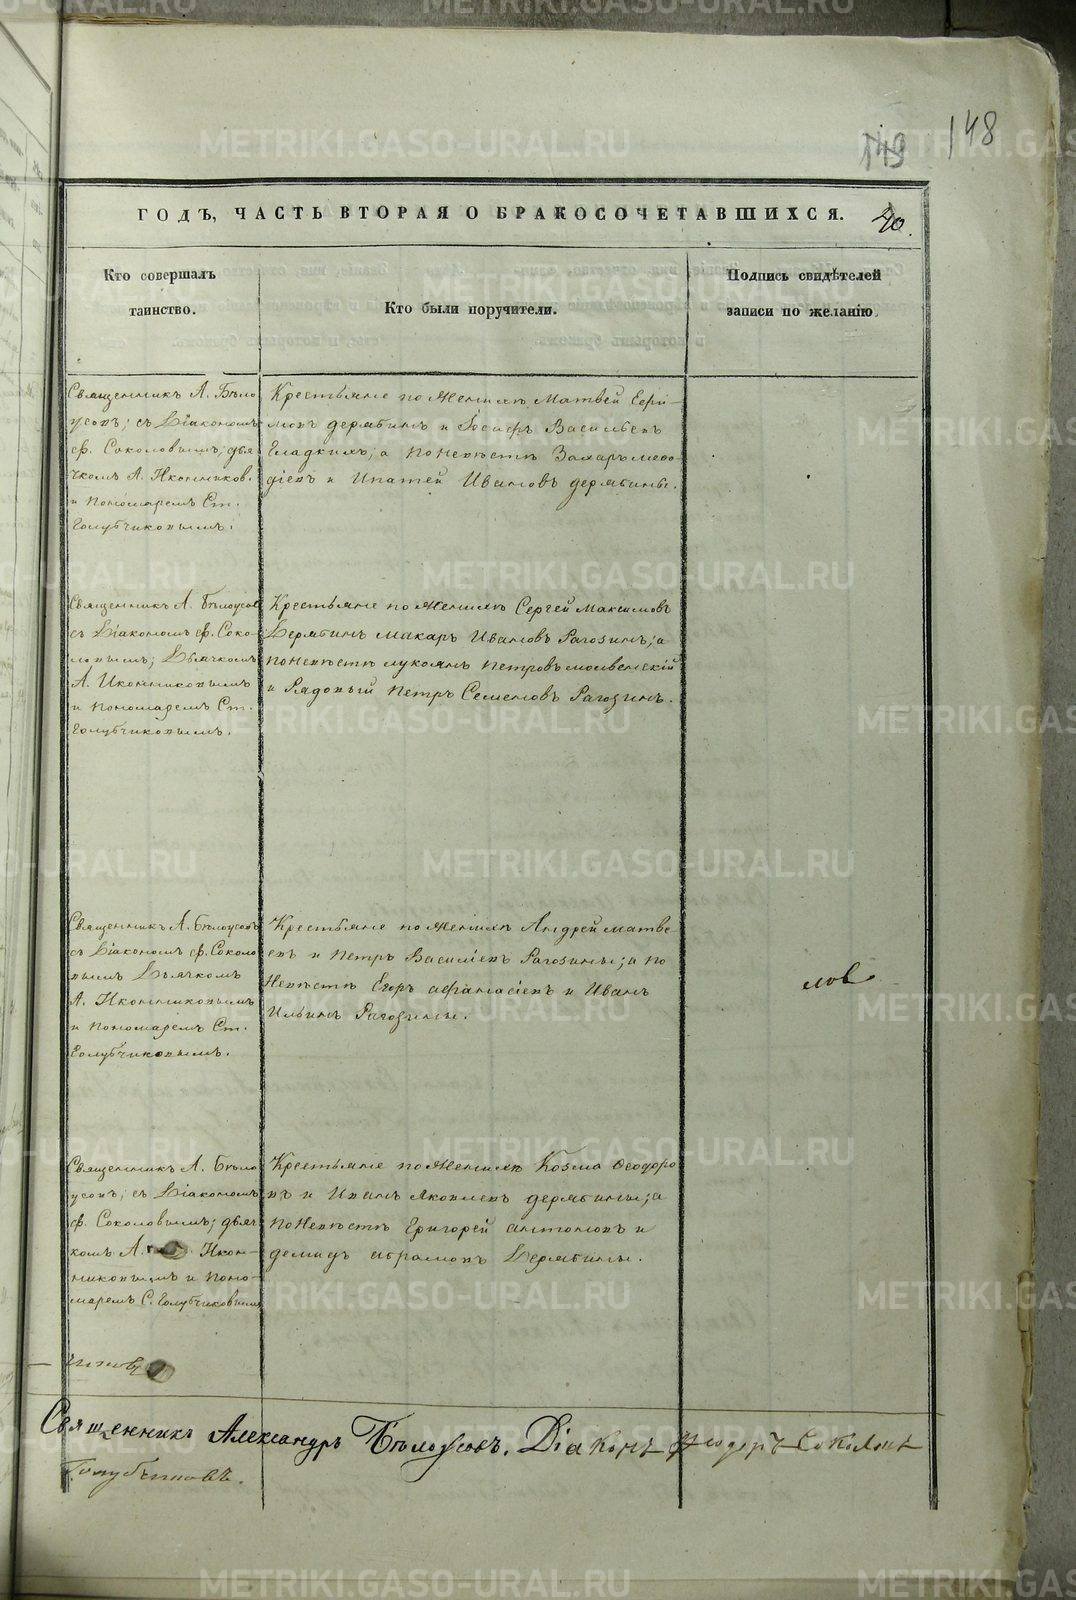 149 148
ГОДЪ, ЧАСТЬ ВТОРАЯ О БРАКОСОЧЕТАВШИХСЯ. 20.
Кто совершалъ
таинство.
Кто были поручители.
Подпись свидѣтелей
записи по желанію
Священникъ А. Бѣло
усовъ; съ Діакономъ
Ф. Соколовымъ; дья
чкомъ А. Иконников.
и пономаремъ Ст.
Голубчиковымъ.
Крестьяне по женихѣ Матвей Ефи-
мовъ Дерябинъ и Іосифъ Васильевъ
Гладкихъ; а по невѣстѣ Захаръ Мефо
діевъ и Ипатей Ивановъ Дерябины.
Священникъ А. Бѣлоусов
съ Діакономъ Ф. Соко-
ловымъ; Дьячкомъ
А. Иконниковымъ
и пономаремъ Ст.
Голубчиковымъ.
Крестьяне по женихѣ Сергей Максимовъ
Дерябинъ Макаръ Ивановъ Рагозинъ; а
по невѣстѣ Лукоянъ Петровъ
и Рядовый Петръ Семеновъ Рагозинъ.
Священникъ А. Бѣлоусовъ
съ Діакономъ Ф. Соколо
вымъ Дьячкомъ
А. Иконниковымъ
и пономаремъ Ст.
Голубчиковымъ.
Крестьяне по женихѣ Андрей Матве
евъ и Петръ Василіевъ Рагозины; а по
невѣстѣ Егоръ Афанасіевъ и Иванъ
Ильинъ Рагозины.
лов
Священникъ А. Бѣло
усовъ; съ Діакономъ
Ф. Соколовымъ; дьяч
комъ А. Икон-
никовымъ и поно-
маремъ С. Голубчиковымъ
Крестьяне по женихѣ Козма Ѳеодоро
въ и Иванъ Яковлевъ Дерябины; а
по невѣстѣ Григорей Антоновъ и
Демидъ Абрамовъ Дерябины.
Священникъ Александръ Бѣлоусовъ. Діаконъ Ѳеодоръ Соколовъ
Голубчиковъ.
METRIKI.GASO-URAL.RU